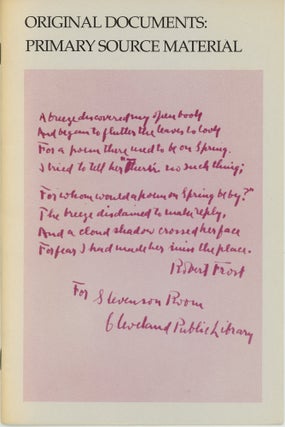 ORIGINAL DOCUMENTS:
PRIMARY SOURCE MATERIAL
A breeze discovered my open book
And began to flutter the leaves to look
For a poem there used to be on Spring.
I tried to tell her "There's no such thing;
For whom would a poem on Spring be by?"
The breeze disdained to make reply,
And a cloud shadow crossed her face
For fear I had made her miss the place.
Robert Frost
For Stevenson Room
Cleveland Public Library